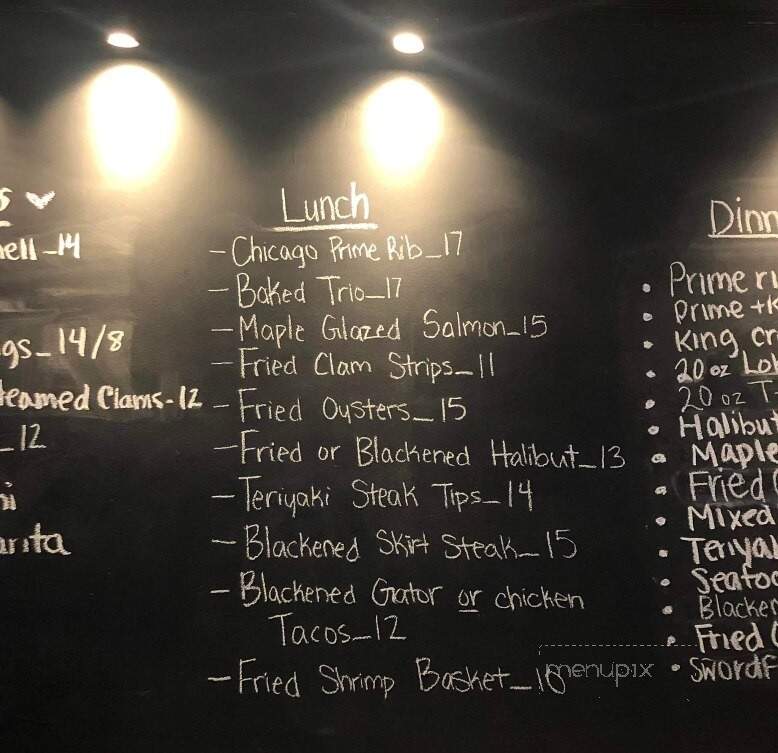 s ♥
ell_14
gs_14/8
teamed Clams-12
_12
hi
arita
Lunch
- Chicago Prime Rib_17
- Baked Trio_17
- Maple Glazed Salmon_15
- Fried Clam Strips_11
- Fried Oysters_15
- Fried or Blackened Halibut_13
- Teriyaki Steak Tips_14
- Blackened Skirt Steak_15
- Blackened Gator or chicken
Tacos_12
- Fried Shrimp Basket_10
menupix
Dinn
• Prime ri
• Prime + K
• King cr
• 20 oz Lo
• 20 oz T
• Halibut
• Maple
• Fried
• Mixed
• Teriyak
• Seafoo
• Blacken
• Fried
• Swordf